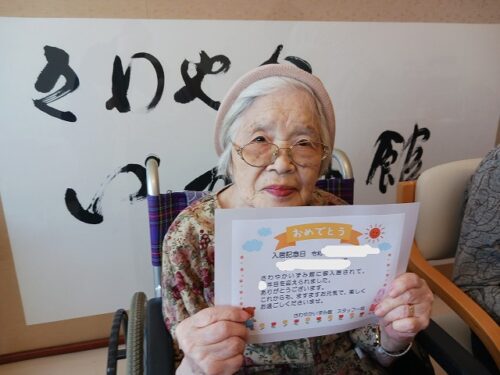 さわやか
い
館
おめでとう
入居記念日 令和
さわやかいずみ館に家入居されて、
年目を迎えられました。
ありがとうございます。
これからも、ますますお元気で、楽しく
お過ごしくださいませ。
さわやかいずみ館 スタッフ一同